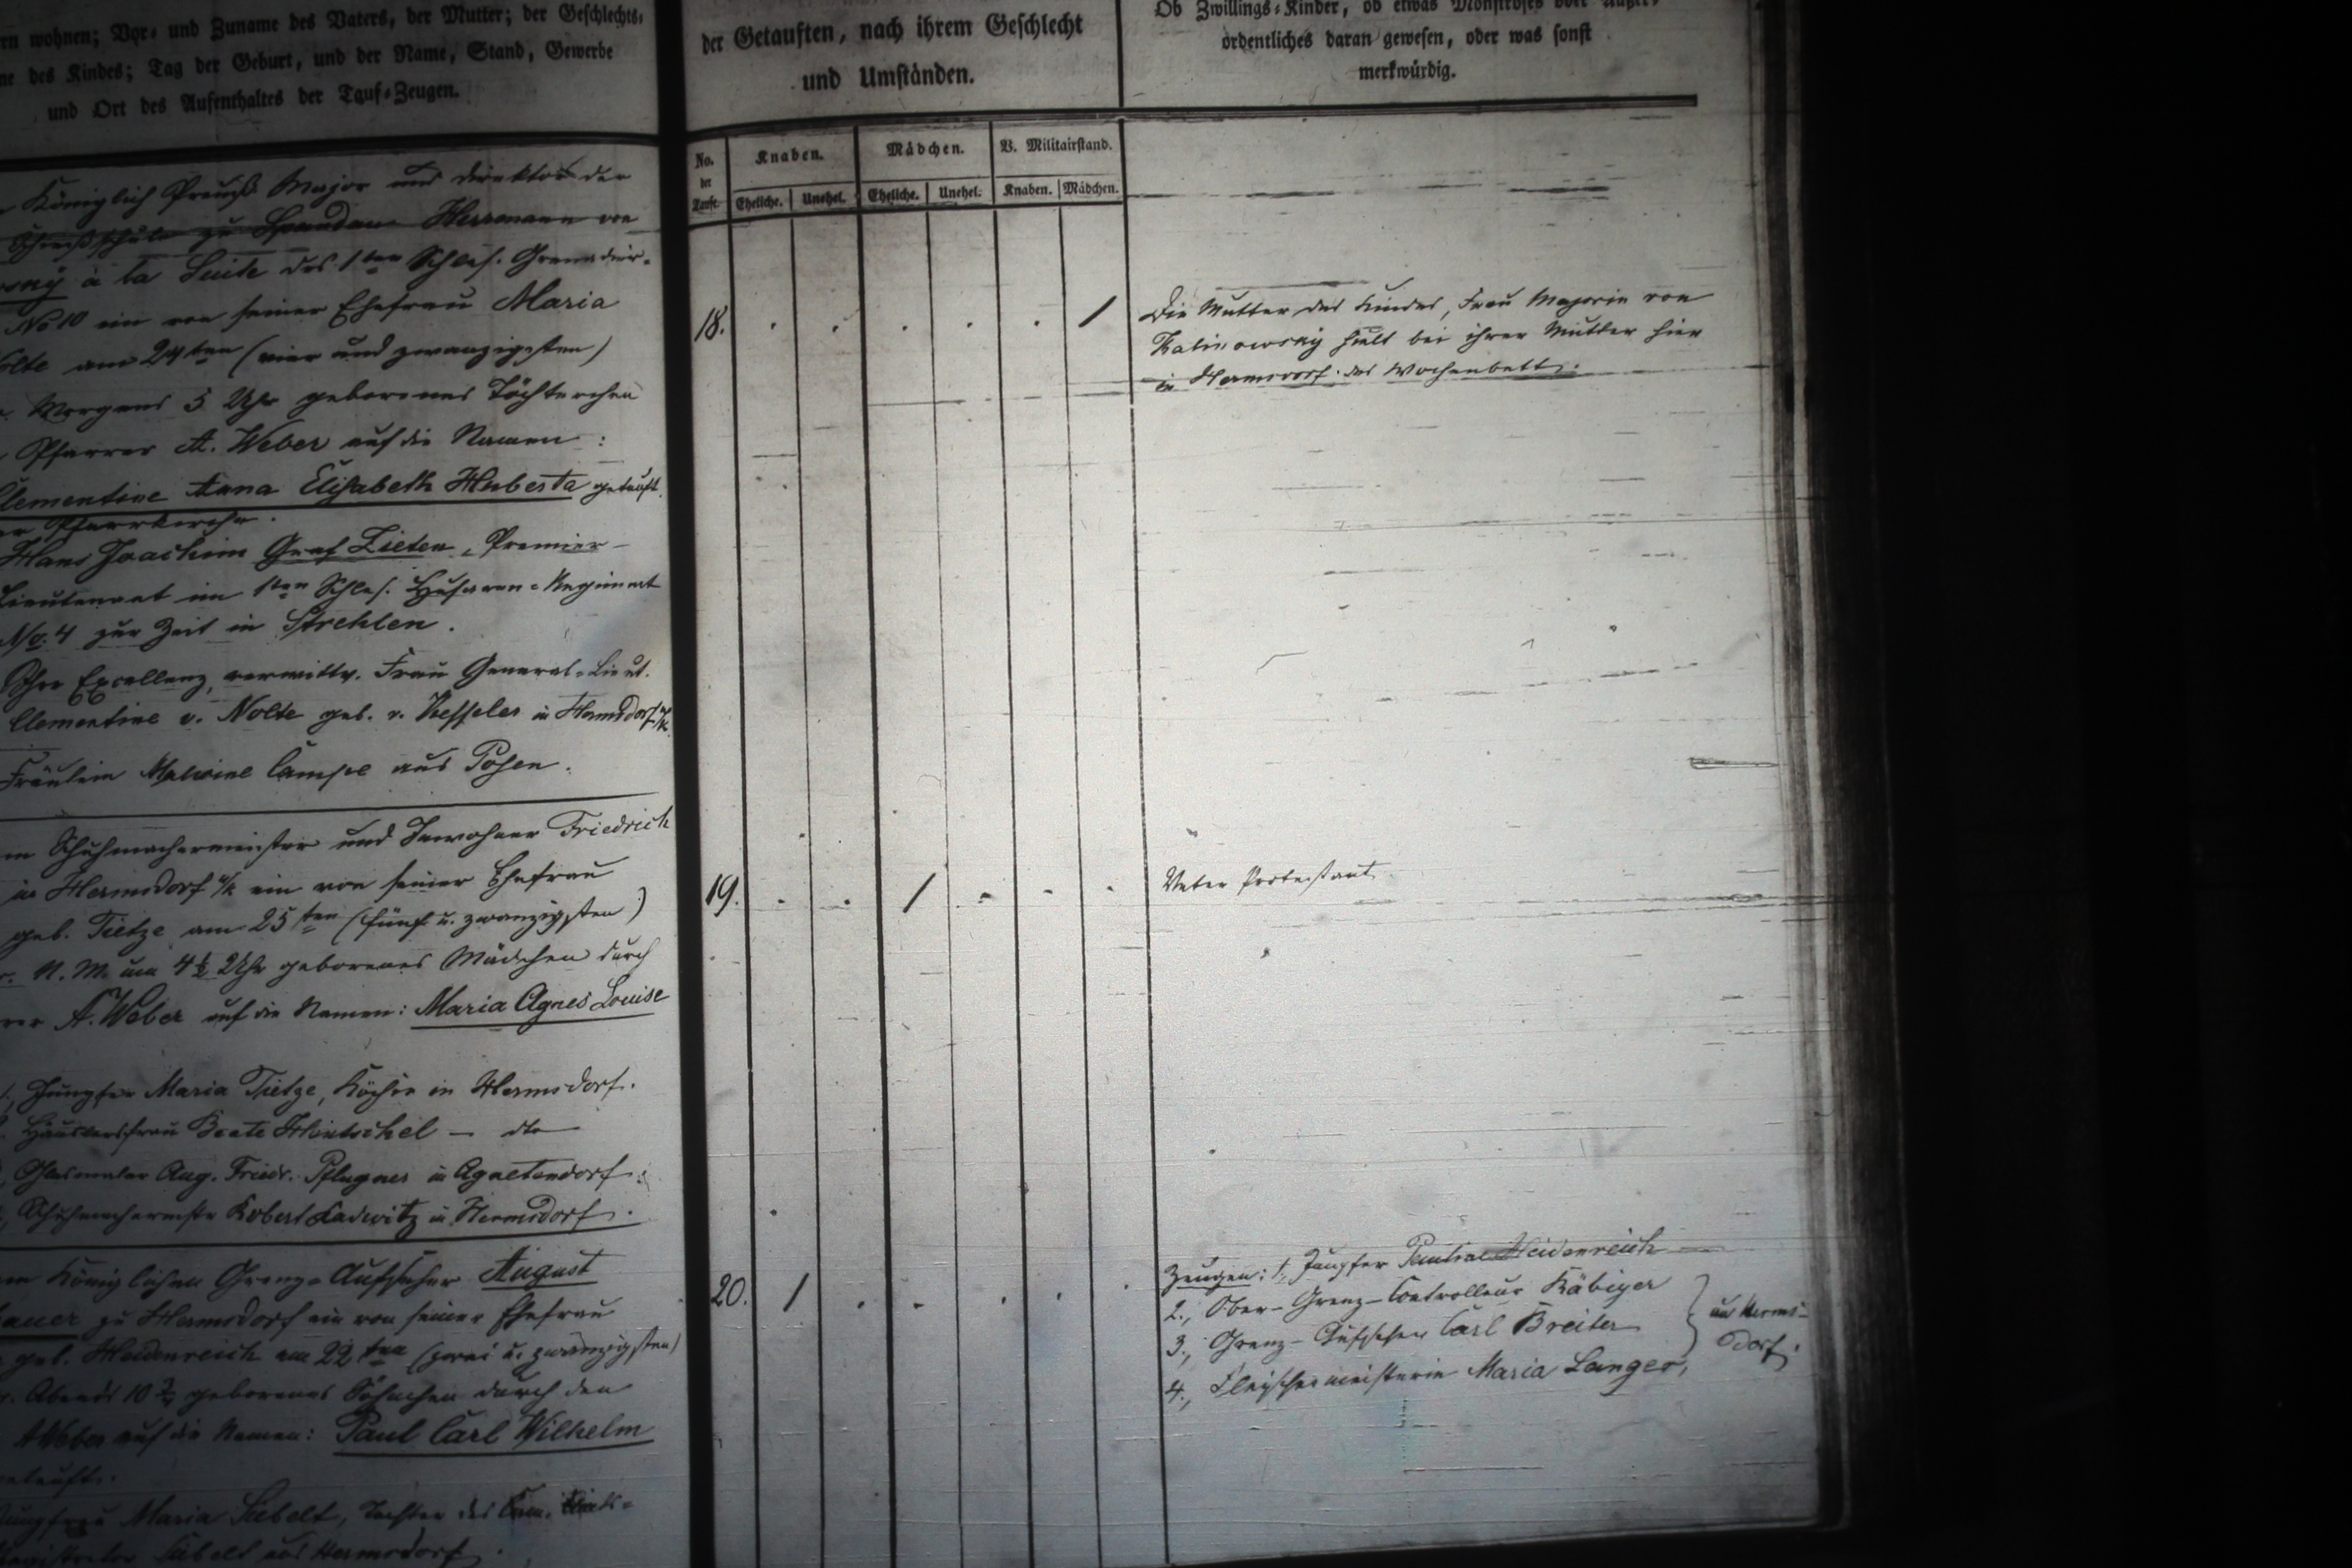 rn wohnen; Vor- und Zuname des Vaters, der Mutter; der Geschlechts-
ne des Kindes; Tag der Geburt, und der Name, Stand, Gewerbe
und Ort des Aufenthaltes der Tauf-Zeugen.
Königlich Preuß Major und Direktor der
Schießschule zu Spandau Herrmann von
wsky à la Suite des 1ten Schles. Grenadier-
No 10 ein von seiner Ehefrau Maria
olte am 24ten (vier und zwanzigsten)
Morgens 5 Uhr geborenes Töchterchen
Pfarrer A. Weber auf die Namen:
Clementine Anna Elisabeth Huberta getauft.
er Pfarrkirche.
Hans Joachim Graf Zieten, Premier-
Lieutenant im 1ten Schles. Husaren-Regiment
No. 4 zur Zeit in Strehlen.
Ihre Excellenz, verwittw. Frau General-Lieut.
Clementine v. Nolte geb. v. Kessler in Hermsdorf /k
Fräulein Malwine Campe aus Posen.
m Schuhmachermeister und Inwohner Friedrich
in Hermsdorf u/k ein von seiner Ehefrau
geb. Tietze am 25ten (fünf u. zwanzigsten)
N. M. um 4½ Uhr geborenes Mädchen durch
rer A. Weber auf die Namen: Maria Agnes Louise
1, Jungfer Maria Tietze, Köchin in Hermsdorf.
Häuslersfrau Beate Hintschel - dto
Glasmaler Aug. Friedr. Pflugner in Agnetendorf.
Schuhmachermstr Robert Ladwitz in Hermsdorf.
Königlichen Grenz-Aufseher August
auer zu Hermsdorf ein von seiner Ehefrau
geb. Heidenreich am 22ten (zwei u. zwanzigsten)
Abends 10 geborenes Söhnchen durch den
A Weber auf die Namen: Paul Carl Wilhelm
getauft.
Jungfrau Maria Siebelt, Tochter des
Siebelt aus Hermsdorf
der Getauften, nach ihrem Geschlecht
und Umständen.
No. der Taufe.
Knaben. Mädchen. V. Militairstand.
Eheliche. Unehel. Eheliche. Unehel. Knaben. Mädchen.
18. . . . . . 1
19. . . 1 . . .
20. 1 . . . . .
Ob Zwillings-Kinder, ob etwas Monströses oder Außer-
ordentliches daran gewesen, oder was sonst
merkwürdig.
Die Mutter des Kindes, Frau Majorin von
Kalinowsky hielt bei ihrer Mutter hier
in Hermsdorf das Wochenbett.
Vater Protestant.
Zeugen: 1, Jungfer Pauline Heidenreich
2., Ober-Grenz-Controlleur Käbiger
3., Grenz-Aufseher Carl Breiter
4., Fleischermeisterin Maria Langer,
aus Herms-
dorf.